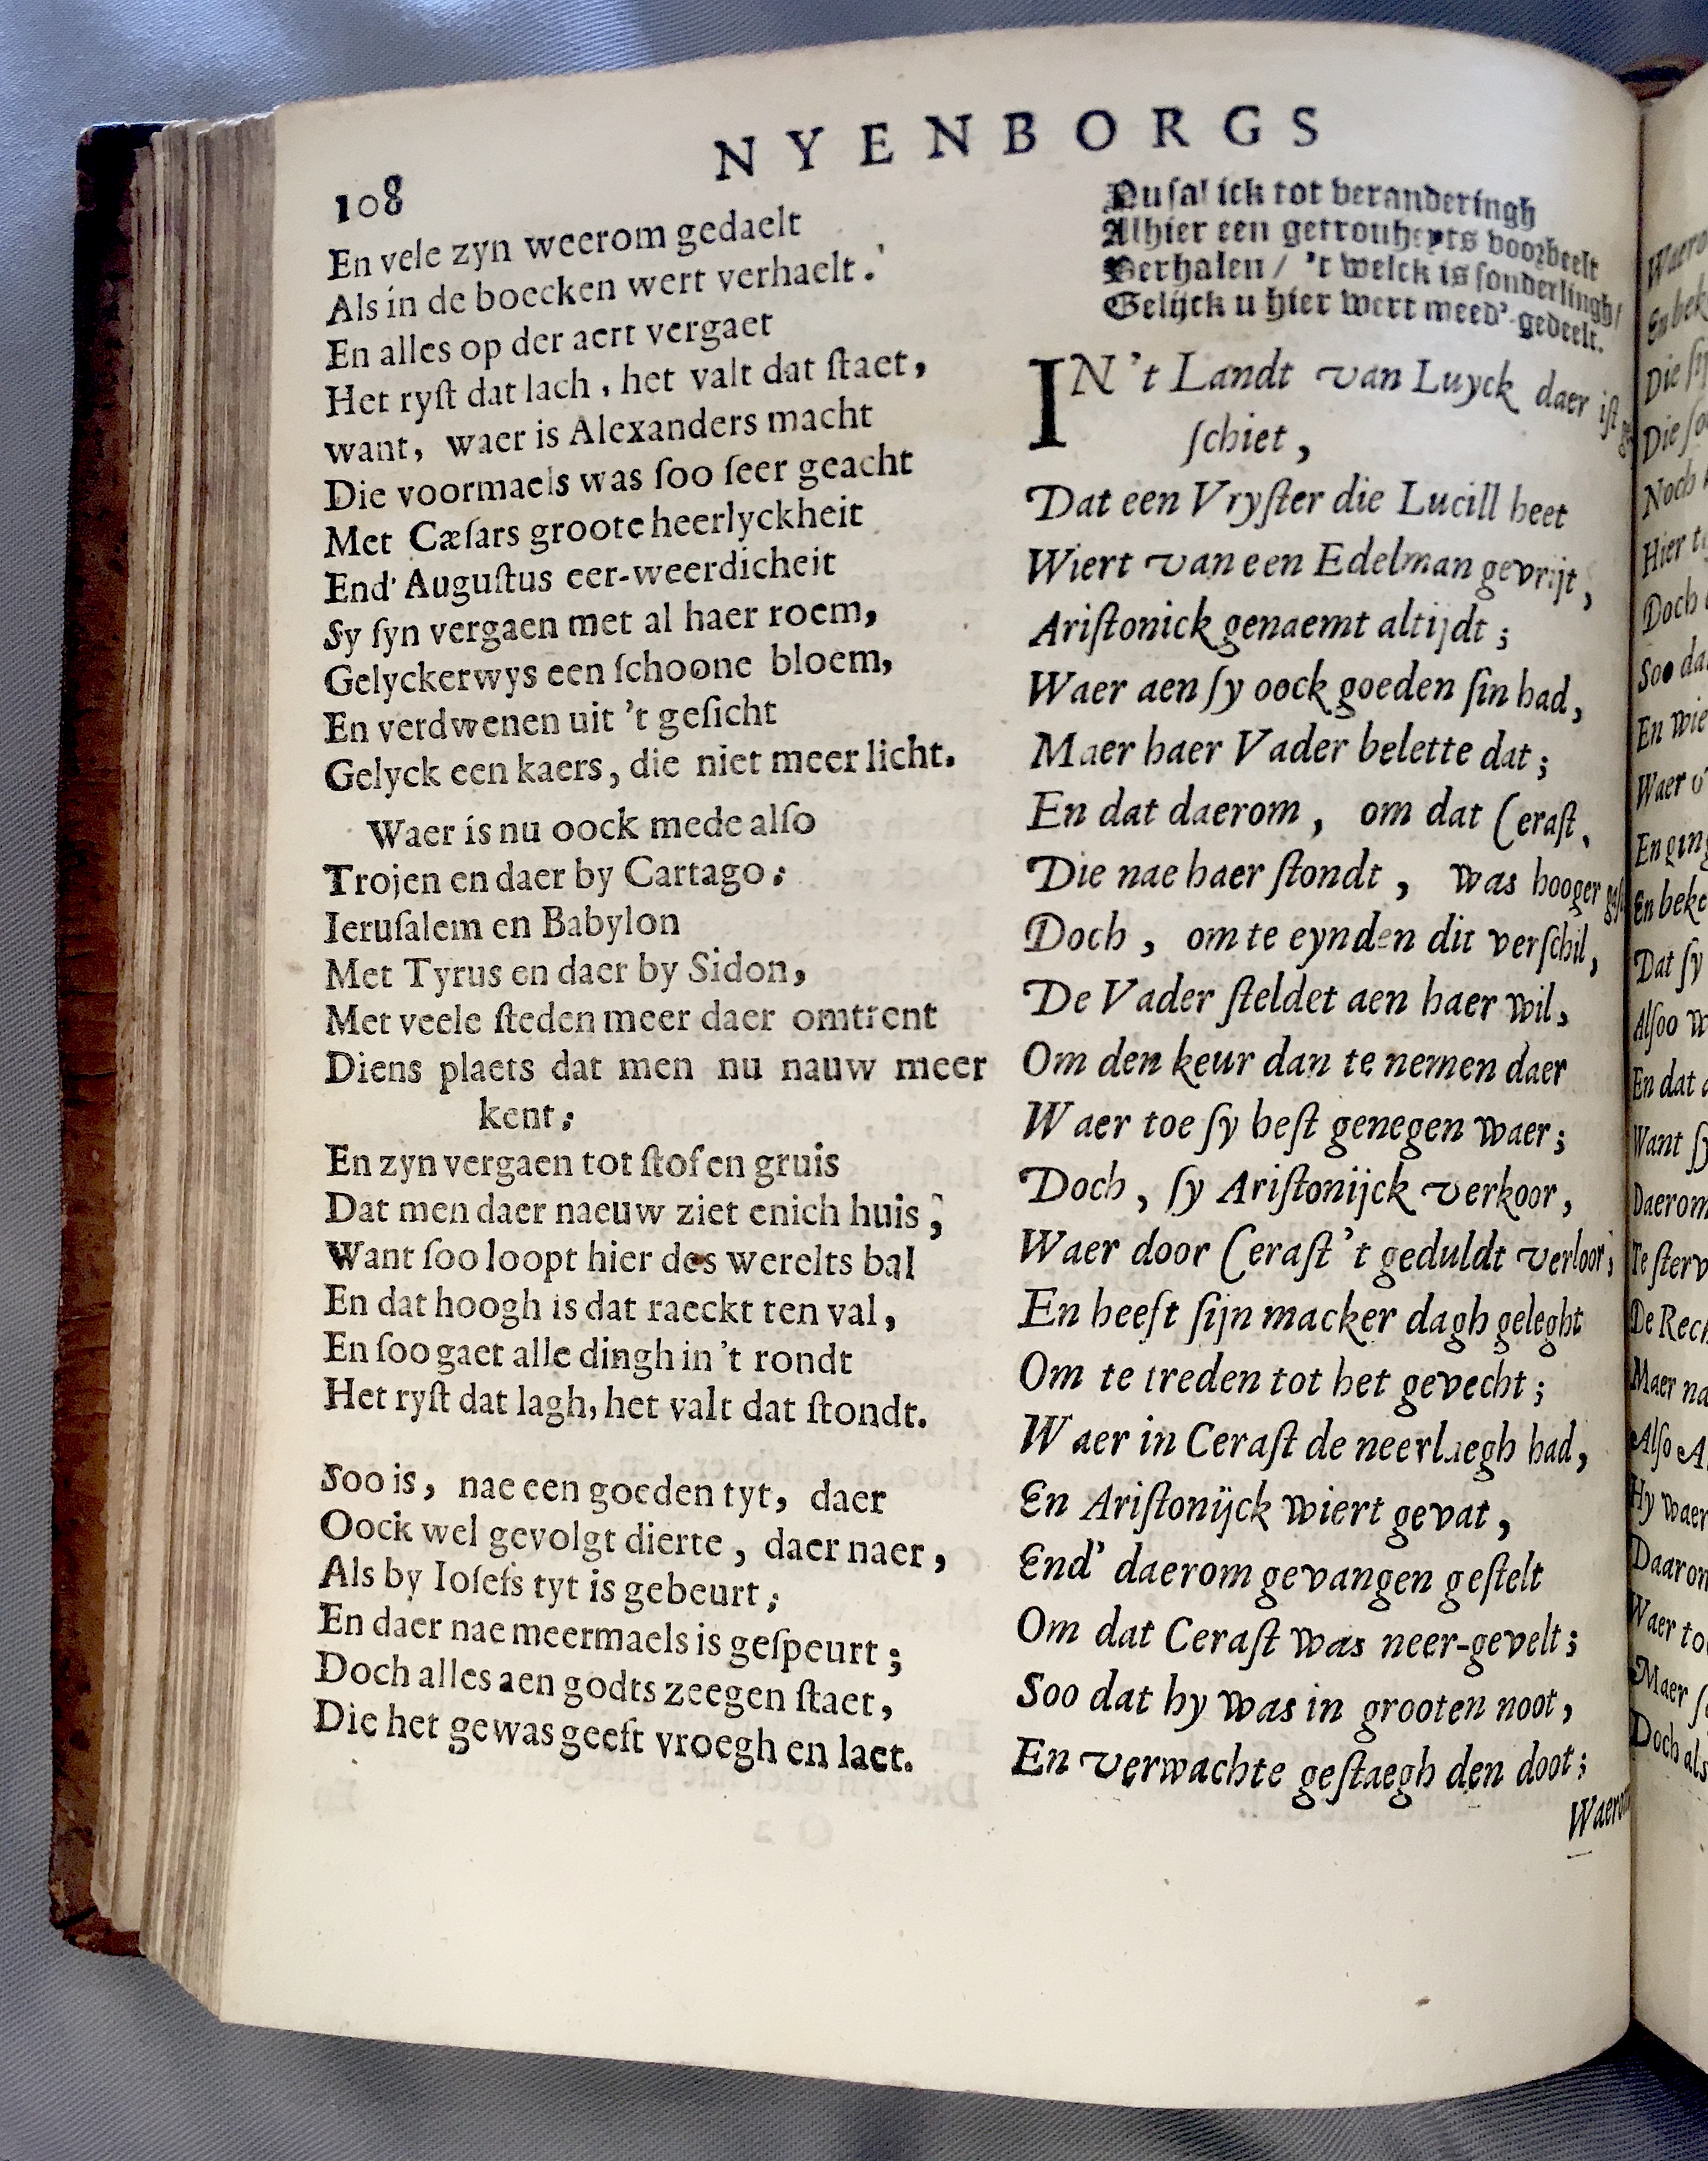 NYENBORGS
108
En vele zyn weerom gedaelt
Als in de boecken wert verhaelt.
En alles op der aert vergaet
Het ryſt dat lach, het valt dat ſtaet,
want, waer is Alexanders macht
Die voormaels was ſoo ſeer geacht
Met Cæſars groote heerlyckheit
End' Auguſtus eer-weerdicheit
Sy ſyn vergaen met al haer roem,
Gelyckerwys een ſchoone bloem,
En verdwenen uit 't geſicht
Gelyck een kaers, die niet meer licht.
Waer is nu oock mede alſo
Trojen en daer by Cartago;
Ieruſalem en Babylon
Met Tyrus en daer by Sidon,
Met veele ſteden meer daer omtrent
Diens plaets dat men nu nauw meer
kent;
En zyn vergaen tot ſtof en gruis
Dat men daer naeuw ziet enich huis,
Want ſoo loopt hier des werelts bal
En dat hoogh is dat raeckt ten val,
En ſoo gaet alle dingh in 't rondt
Het ryſt dat lagh, het valt dat ſtondt.
Soo is, nae een goeden tyt, daer
Oock wel gevolgt dierte, daer naer,
Als by Ioſefs tyt is gebeurt;
En daer nae meermaels is geſpeurt;
Doch alles aen godts zeegen ſtaet,
Die het gewas geeft vroegh en laet.
Nu ſal ick tot veranderingh
Alhier een getrouheyts voorbeelt
Verhalen / 't welck is ſonderlingh /
Gelijck u hier wert meed'-gedeelt.
IN 't Landt van Luyck daer iſt ge-
ſchiet,
Dat een Vryſter die Lucill heet
Wiert van een Edelman gevrijt,
Ariſtonick genaemt altijdt;
Waer aen ſy oock goeden ſin had,
Maer haer Vader belette dat;
En dat daerom, om dat Ceraſt,
Die nae haer ſtondt, was hooger
Doch, om te eynden dit verſchil,
De Vader ſteldet aen haer wil,
Om den keur dan te nemen daer
Waer toe ſy beſt genegen waer;
Doch, ſy Ariſtonijck verkoor,
Waer door Ceraſt 't geduldt verloor;
En heeft ſijn macker dagh geleght
Om te treden tot het gevecht;
Waer in Ceraſt de neerlaegh had,
En Ariſtonijck wiert gevat,
End' daerom gevangen geſtelt
Om dat Ceraſt was neer-gevelt;
Soo dat hy was in grooten noot,
En verwachte geſtaegh den doot;
Waerom
En bek
Die
Die
Noch
Hier
Doch
Soo da
En wie
Waer
En ging
En beke
Dat ſy
Alſoo
En dat
Want ſy
Daerom
Te ſterv
De Rech
Maer na
Alſo A
Hy waer
Daarom
Waer to
Maer
Doch als